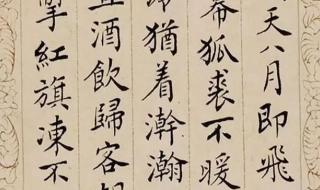 天八月即飛
幕狐裘不暖
猶着澣瀚
酒飲歸客
掣紅旗凍不